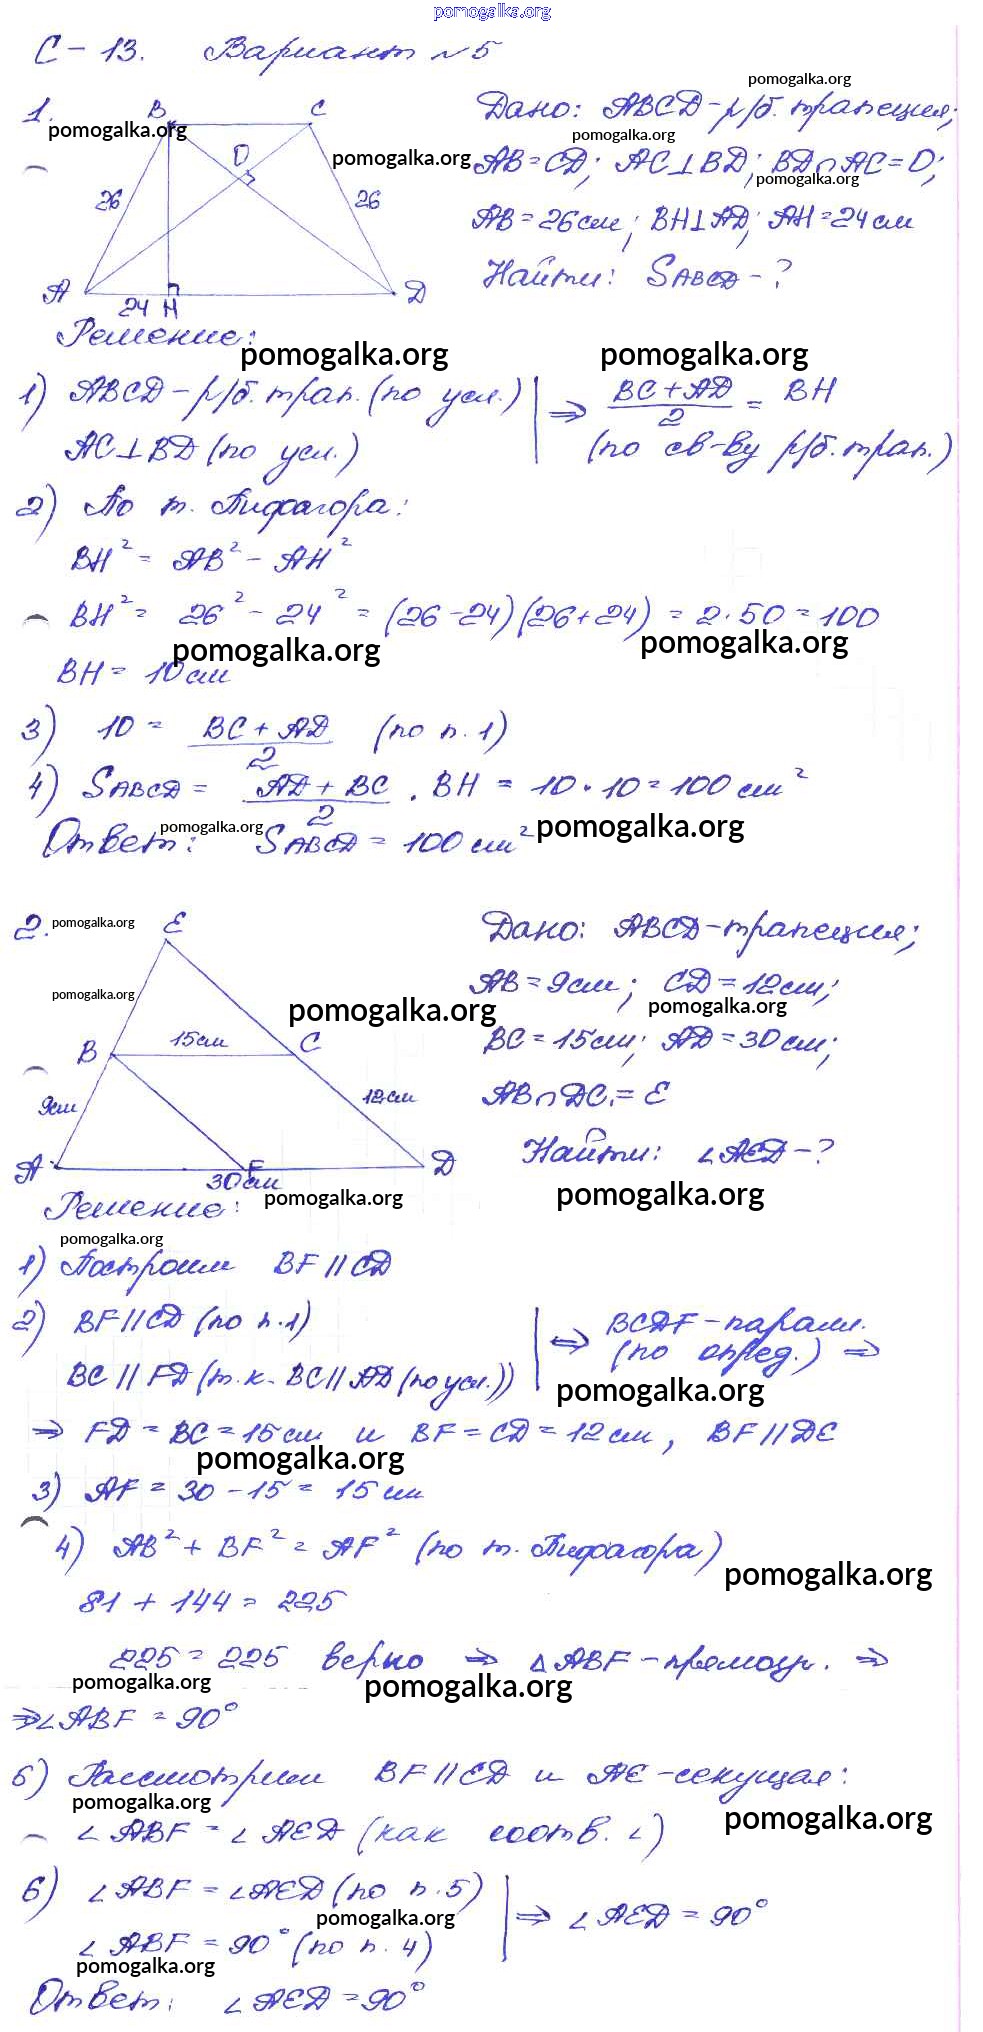 pomogalka.org
С-13. Вариант №5
pomogalka.org
1.
B
C
O
26
26
A
24
H
D
pomogalka.org
pomogalka.org
Дано: ABCD-р/б. трапеция;
pomogalka.org
AB=CD; AC⊥BD; BD∩AC=O;
pomogalka.org
AB=26см; BH⊥AD; AH=24см
Найти: SABCD-?
Решение:
pomogalka.org
pomogalka.org
1) ABCD-р/б. трап. (по усл.) | ⇒ (BC+AD)/2 = BH
AC⊥BD (по усл.) (по св-ву р/б. трап.)
2) По т. Пифагора:
BH² = AB² - AH²
BH² = 26² - 24² = (26-24)(26+24) = 2·50=100
pomogalka.org
pomogalka.org
BH = 10см
3) 10 = (BC+AD)/2 (по п.1)
4) SABCD = (AD+BC)/2 · BH = 10·10=100см²
pomogalka.org
pomogalka.org
Ответ: SABCD = 100см²
2.
pomogalka.org
E
pomogalka.org
pomogalka.org
15см
B
C
9см
12см
A
F
D
30см
pomogalka.org
Дано: ABCD-трапеция;
AB=9см; CD=12см;
pomogalka.org
BC=15см; AD=30см;
AB∩DC=E
Найти: ∠AED-?
pomogalka.org
Решение:
pomogalka.org
1) Построим BF∥CD
2) BF∥CD (по п.1) | ⇒ BCDF-паралл.
BC∥FD (т.к. BC∥AD (по усл.)) (по опред.) ⇒
pomogalka.org
⇒ FD=BC=15см и BF=CD=12см, BF∥DE
pomogalka.org
3) AF=30-15=15см
4) AB²+BF²=AF² (по т. Пифагора)
pomogalka.org
81+144=225
225=225 верно ⇒ △ABF-прямоуг. ⇒
pomogalka.org
pomogalka.org
⇒∠ABF=90°
5) Рассмотрим BF∥ED и AE-секущая:
pomogalka.org
pomogalka.org
∠ABF=∠AED (как соотв. ∠)
6) ∠ABF=∠AED (по п.5) | ⇒ ∠AED=90°
pomogalka.org
∠ABF=90° (по п.4)
pomogalka.org
Ответ: ∠AED=90°